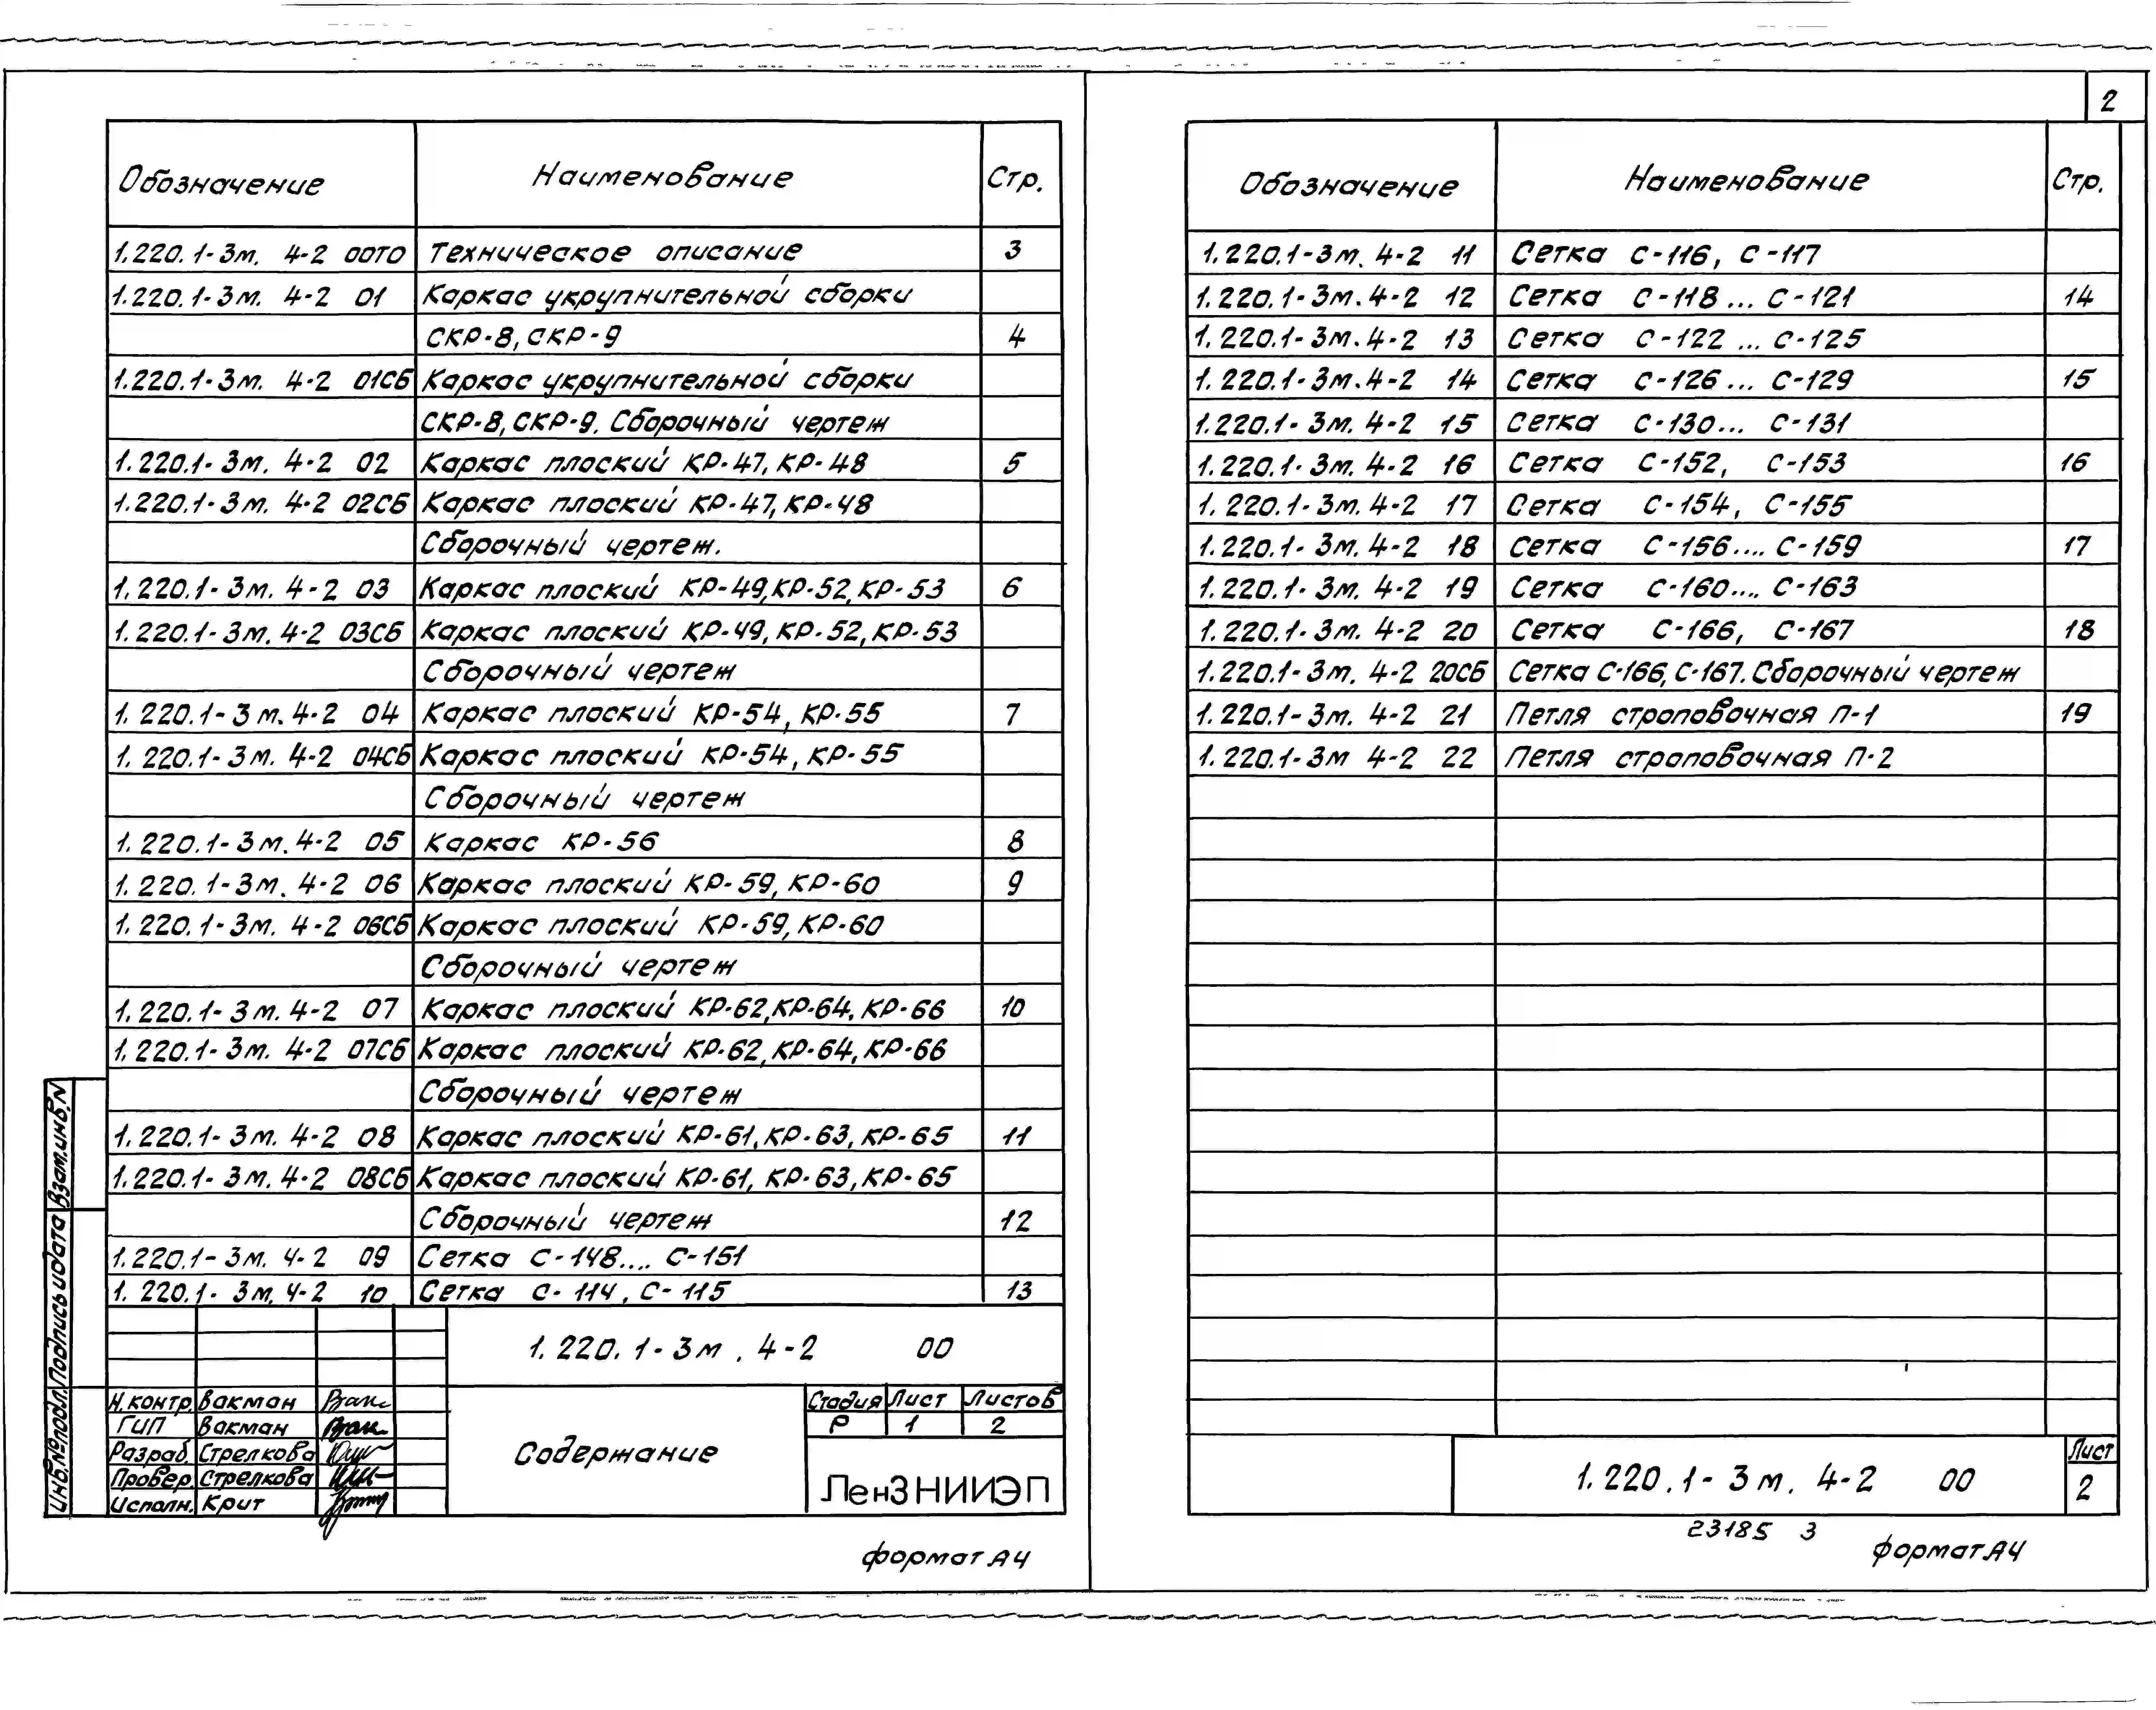 2
Обозначение Наименование Стр.
1.220.1-3м. 4-2 00ТО Техническое описание 3
1.220.1-3м. 4-2 01 Каркас укрупнительной сборки
СКР-8, СКР-9 4
1.220.1-3м. 4-2 01СБ Каркас укрупнительной сборки
СКР-8, СКР-9. Сборочный чертеж
1.220.1-3м. 4-2 02 Каркас плоский КР-47, КР-48 5
1.220.1-3м. 4-2 02СБ Каркас плоский КР-47, КР-48
Сборочный чертеж.
1.220.1-3м. 4-2 03 Каркас плоский КР-49, КР-52, КР-53 6
1.220.1-3м. 4-2 03СБ Каркас плоский КР-49, КР-52, КР-53
Сборочный чертеж
1.220.1-3м. 4-2 04 Каркас плоский КР-54, КР-55 7
1.220.1-3м. 4-2 04СБ Каркас плоский КР-54, КР-55
Сборочный чертеж
1.220.1-3м. 4-2 05 Каркас КР-56 8
1.220.1-3м. 4-2 06 Каркас плоский КР-59, КР-60 9
1.220.1-3м. 4-2 06СБ Каркас плоский КР-59, КР-60
Сборочный чертеж
1.220.1-3м. 4-2 07 Каркас плоский КР-62, КР-64, КР-66 10
1.220.1-3м. 4-2 07СБ Каркас плоский КР-62, КР-64, КР-66
Сборочный чертеж
1.220.1-3м. 4-2 08 Каркас плоский КР-61, КР-63, КР-65 11
1.220.1-3м. 4-2 08СБ Каркас плоский КР-61, КР-63, КР-65
Сборочный чертеж 12
1.220.1-3м. 4-2 09 Сетка С-148.... С-151
1.220.1-3м. 4-2 10 Сетка С-114, С-115 13
1.220.1-3м. 4-2 00
Н.контр. Вакман
ГИП Вакман
Разраб. Стрелкова
Провер. Стрелкова
Исполн. Крит
Содержание
Стадия Лист Листов
Р 1 2
ЛенЗНИИЭП
Инв.№подл. Подпись и дата Взам.инв.N
формат А4
Обозначение Наименование Стр.
1.220.1-3м. 4-2 11 Сетка С-116, С-117
1.220.1-3м. 4-2 12 Сетка С-118... С-121 14
1.220.1-3м. 4-2 13 Сетка С-122 ... С-125
1.220.1-3м. 4-2 14 Сетка С-126... С-129 15
1.220.1-3м. 4-2 15 Сетка С-130... С-131
1.220.1-3м. 4-2 16 Сетка С-152, С-153 16
1.220.1-3м. 4-2 17 Сетка С-154, С-155
1.220.1-3м. 4-2 18 Сетка С-156.... С-159 17
1.220.1-3м. 4-2 19 Сетка С-160.... С-163
1.220.1-3м. 4-2 20 Сетка С-166, С-167 18
1.220.1-3м. 4-2 20СБ Сетка С-166, С-167. Сборочный чертеж
1.220.1-3м. 4-2 21 Петля строповочная П-1 19
1.220.1-3м 4-2 22 Петля строповочная П-2
1.220.1-3м. 4-2 00
Лист
2
23185 3
формат А4